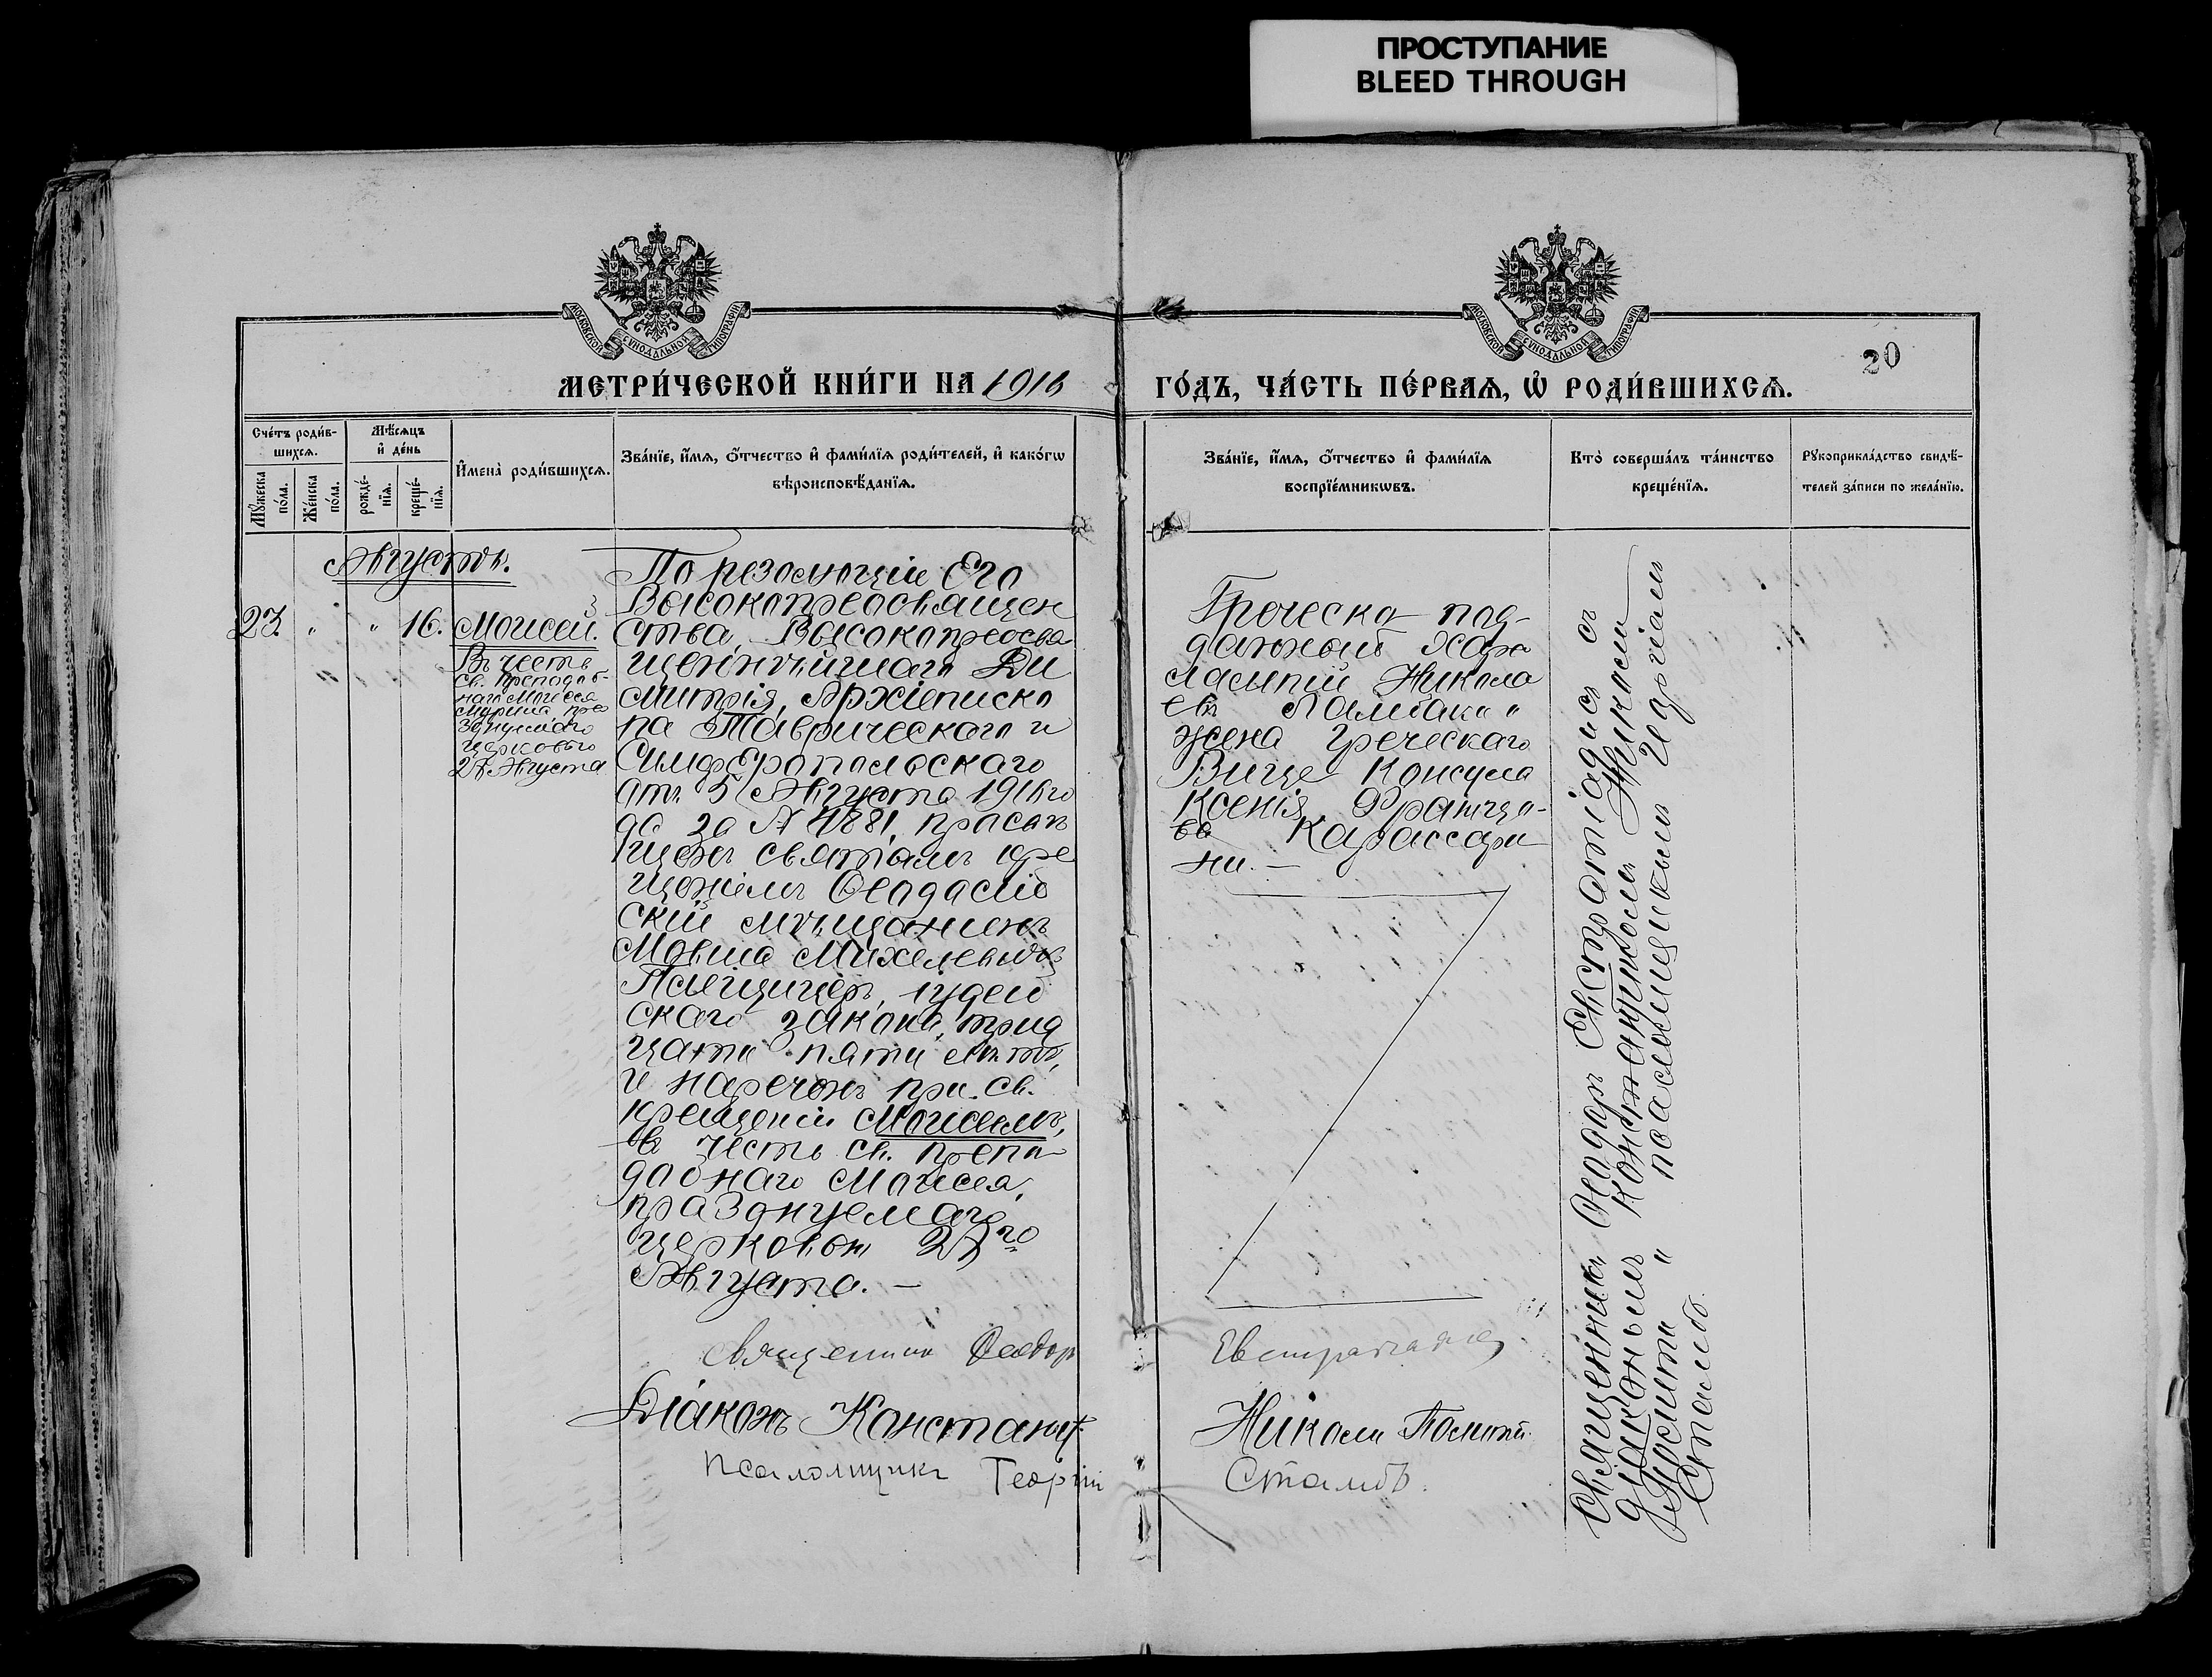 ПРОСТУПАНИЕ
BLEED THROUGH
МОСКОВСКОЙ СѴНОДАЛЬНОЙ ТИПОГРАФІИ
МОСКОВСКОЙ СѴНОДАЛЬНОЙ ТИПОГРАФІИ
20
МЕТРИ́ЧЕСКОЙ КНИ́ГИ НА 1916
ГО́ДЪ, ЧА́СТЬ ПЕ́РВАѦ, Ѡ҆ РОДИ́ВШИХСѦ.
Сче́тъ роди́в-
шихсѧ.
Мꙋ́жеска
по́ла.
Же́нска
по́ла.
Мѣ́сѧцъ
и҆ де́нь
рожде́-
нїѧ.
креще́-
нїѧ.
И҆мена̀ роди́вшихсѧ.
Зва́нїе, и҆́мѧ, ѻ҆́тчество и҆ фами́лїѧ роди́телей, и҆ како́гѡ
вѣроисповѣ́данїѧ.
Зва́нїе, и҆́мѧ, ѻ҆́тчество и҆ фами́лїѧ
воспрїе́мникѡвъ.
Кто̀ соверша́лъ та́инство
креще́нїѧ.
Рꙋкоприкла́дство свидѣ́-
телей за́писи по жела́нїю.
Августъ.
23. " " 16. Моисей.
Въ честь
св. преподоб-
наго Моисея
Мурина пра
зднуемаго
церковью
28 Августа
По резолюціи Его
Высокопреосвящен
ства, Высокопреосвя
щеннѣйшаго Ди
митрія, Архіеписко
па Таврическаго и
Симферопольскаго
отъ 5 Августа 1916 го
да за № 4881, просвѣ
щенъ святымъ кре
щеніемъ Ѳеодосій
скій мѣщанинъ
Мовша Михелевичъ
іудей
скаго закона, трид
цати пяти лѣтъ,
и нареченъ при св.
крещеніи Моисеемъ,
въ честь св. препо
добнаго Моисея,
празднуемаго
церковью 28го
Августа. —
Греческо-под-
данный Хара
лампій Никола
евъ Ламбаки "
жена Греческаго
Вице Консула
Ксенія Францо-
ва Карассари
ни. —
Священникъ Ѳеодоръ Евстратіадисъ съ
діакономъ Константиномъ Николи
Полити " псаломщикомъ Георгіемъ
Стамбъ.
Священникъ Ѳеодоръ Евстратіадис
Діаконъ Констант. Николи Полити.
Псаломщикъ Георгій Стамбъ.